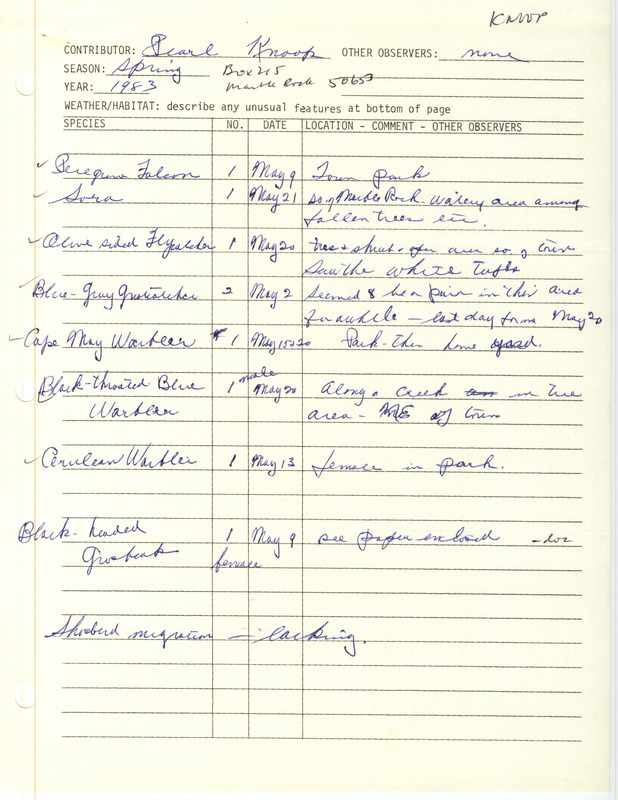 KNOP
CONTRIBUTOR: Pearl Knoop OTHER OBSERVERS: none
SEASON: Spring Box 215
YEAR: 1983 Marble Rock 50653
WEATHER/HABITAT: describe any unusual features at bottom of page
SPECIES NO. DATE LOCATION - COMMENT - OTHER OBSERVERS
Peregrine Falcon 1 May 9 Town park
Sora 1 May 21 so of Marble Rock - watery area among
fallen trees etc.
Olive sided Flycatcher 1 May 20 tree & shrub - open area so of town
Saw the white tufts
Blue-Gray Gnatcatcher 2 May 2 seemed to be a pair in this area
for awhile - last day for me May 20
Cape May Warbler 1 May 15 20 Park - then home yard.
male
Black-throated Blue 1 May 20 Along a creek in tree
Warbler area - NE of town
Cerulean Warbler 1 May 13 female in park.
Black-headed 1 May 9 see paper enclosed - doc
Grosbeak female
Shorebird migration - lacking.